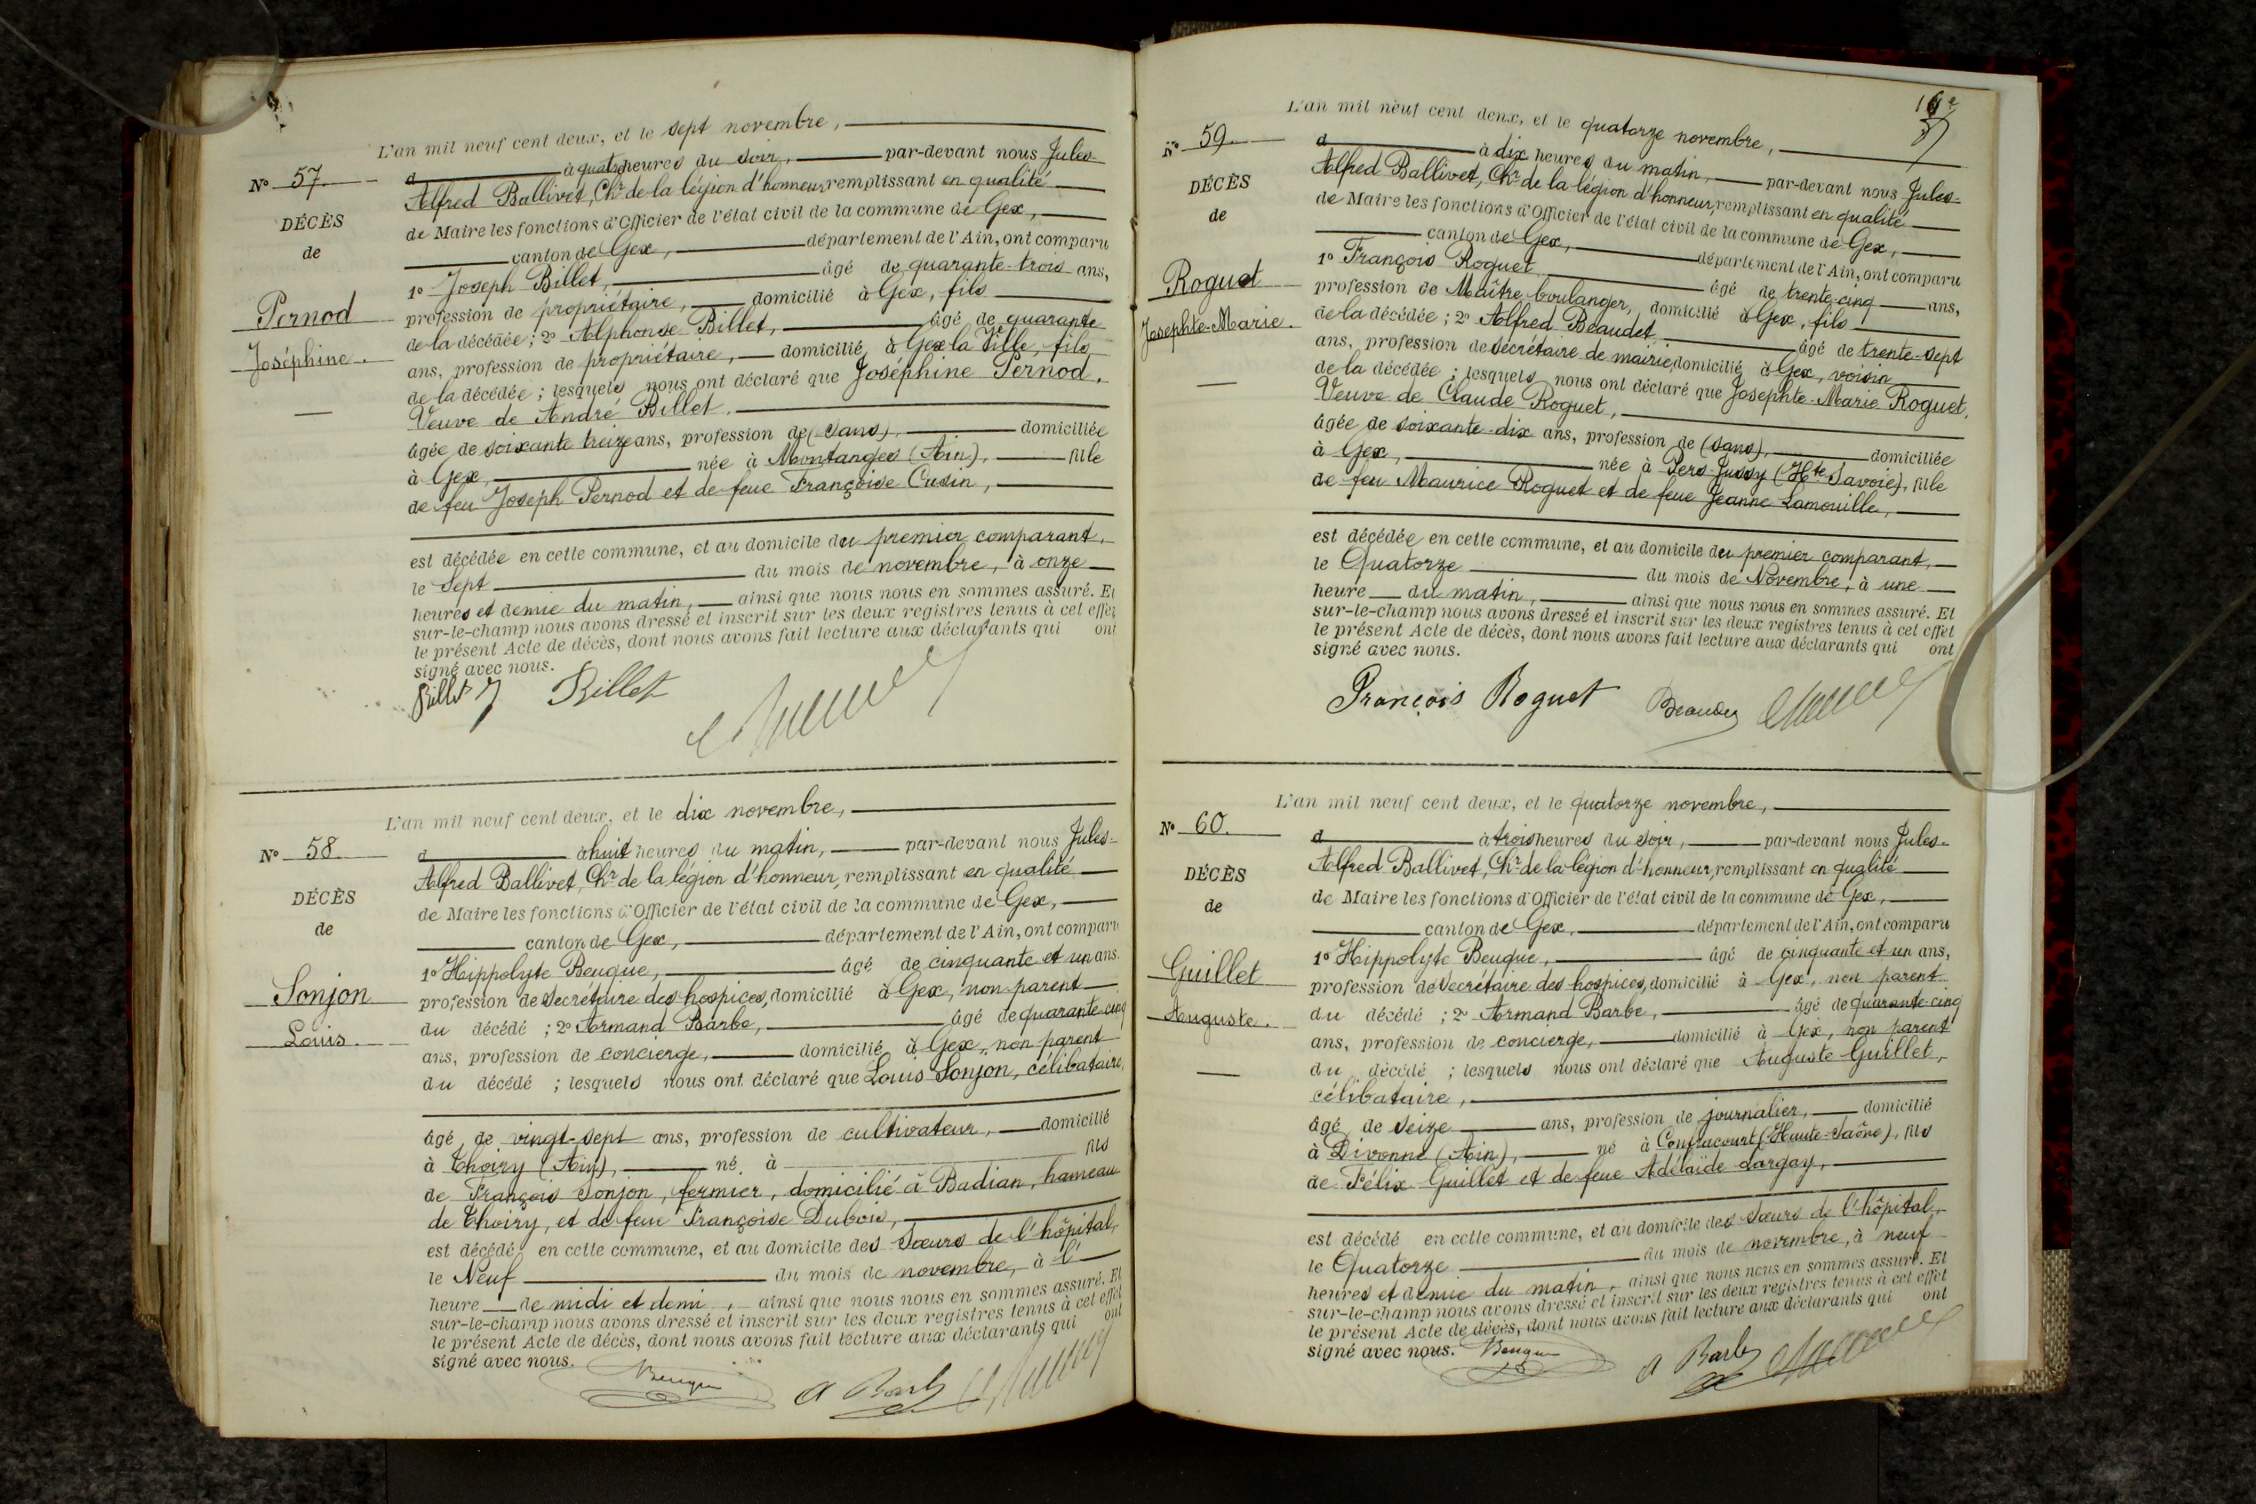 L'an mil neuf cent deux, et le sept novembre,
N° 57.
d à quatre heures du soir, par-devant nous Jules-
Alfred Ballivet, Chr de la légion d'honneur, remplissant en qualité
DÉCÈS
de Maire les fonctions d'Officier de l'état civil de la commune de Gex,
de
canton de Gex, département de l'Ain, ont comparu
1° Joseph Billet, âgé de quarante-trois ans,
Pernod
profession de propriétaire, domicilié à Gex, fils
de la décédée ; 2° Alphonse Billet, âgé de quarante
Joséphine.
ans, profession de propriétaire, domicilié à Gex la Ville, fils
de la décédée ; lesquels nous ont déclaré que Joséphine Pernod,
Veuve de André Billet,
âgée de soixante treize ans, profession de (sans), domiciliée
à Gex, née à Montanges (Ain), fille
de feu Joseph Pernod et de feue Françoise Cusin,
est décédée en cette commune, et au domicile du premier comparant,
le Sept du mois de novembre, à onze
heures et demie du matin, ainsi que nous nous en sommes assuré. Et
sur-le-champ nous avons dressé et inscrit sur les deux registres tenus à cet effet
le présent Acte de décès, dont nous avons fait lecture aux déclarants qui ont
signé avec nous.
Billet J Billet
L'an mil neuf cent deux, et le dix novembre,
N° 58
d à huit heures du matin, par-devant nous Jules-
Alfred Ballivet, Chr de la légion d'honneur, remplissant en qualité
DÉCÈS
de Maire les fonctions d'Officier de l'état civil de la commune de Gex,
de
canton de Gex, département de l'Ain, ont comparu
1° Hippolyte Beuque, âgé de cinquante et un ans.
Sonjon
profession de Secrétaire des hospices, domicilié à Gex, non parent
du décédé ; 2° Armand Barbe, âgé de quarante-cinq
Louis.
ans, profession de concierge, domicilié à Gex, non parent
du décédé ; lesquels nous ont déclaré que Louis Sonjon, célibataire,
âgé de vingt-sept ans, profession de cultivateur, domicilié
à Thoiry (Ain), né à fils
de François Sonjon, fermier, domicilié à Badian, hameau
de Thoiry, et de feue Françoise Dubois,
est décédé en cette commune, et au domicile des Sœurs de l'hôpital,
le Neuf du mois de novembre, à l'
heure de midi et demi, ainsi que nous nous en sommes assuré. Et
sur-le-champ nous avons dressé et inscrit sur les deux registres tenus à cet effet
le présent Acte de décès, dont nous avons fait lecture aux déclarants qui ont
signé avec nous.
Beuque A Barbe
L'an mil neuf cent deux, et le quatorze novembre,
N° 59.
d à dix heures du matin, par-devant nous Jules-
Alfred Ballivet, Chr de la légion d'honneur, remplissant en qualité
DÉCÈS
de Maire les fonctions d'Officier de l'état civil de la commune de Gex,
de
canton de Gex, département de l'Ain, ont comparu
1° François Roguet, âgé de trente-cinq ans,
Roguet
profession de Maître boulanger, domicilié à Gex, fils
de la décédée ; 2° Alfred Beaudet, âgé de trente-sept
Josephte-Marie.
ans, profession de secrétaire de mairie, domicilié à Gex, voisin
de la décédée ; lesquels nous ont déclaré que Josephte-Marie Roguet,
Veuve de Claude Roguet,
âgée de soixante-dix ans, profession de (sans), domiciliée
à Gex, née à Pers-Jussy (Hte Savoie), fille
de feu Maurice Roguet et de feue Jeanne Lamouille,
est décédée en cette commune, et au domicile du premier comparant,
le Quatorze du mois de Novembre, à une
heure du matin, ainsi que nous nous en sommes assuré. Et
sur-le-champ nous avons dressé et inscrit sur les deux registres tenus à cet effet
le présent Acte de décès, dont nous avons fait lecture aux déclarants qui ont
signé avec nous.
François Roguet Beaudet
L'an mil neuf cent deux, et le quatorze novembre,
N° 60.
d à trois heures du soir, par-devant nous Jules-
Alfred Ballivet, Chr de la légion d'honneur, remplissant en qualité
DÉCÈS
de Maire les fonctions d'Officier de l'état civil de la commune de Gex,
de
canton de Gex, département de l'Ain, ont comparu
1° Hippolyte Beuque, âgé de cinquante et un ans,
Guillet
profession de Secrétaire des hospices, domicilié à Gex, non parent
du décédé ; 2° Armand Barbe, âgé de quarante-cinq
Auguste.
ans, profession de concierge, domicilié à Gex, non parent
du décédé ; lesquels nous ont déclaré que Auguste Guillet,
célibataire,
âgé de seize ans, profession de journalier, domicilié
à Divonne (Ain), né à Confracourt (Haute-Saône), fils
de Félix Guillet et de feue Adélaïde Largay,
est décédé en cette commune, et au domicile des Sœurs de l'hôpital,
le Quatorze du mois de novembre, à neuf
heures et demie du matin, ainsi que nous nous en sommes assuré. Et
sur-le-champ nous avons dressé et inscrit sur les deux registres tenus à cet effet
le présent Acte de décès, dont nous avons fait lecture aux déclarants qui ont
signé avec nous. Beuque
A Barbe